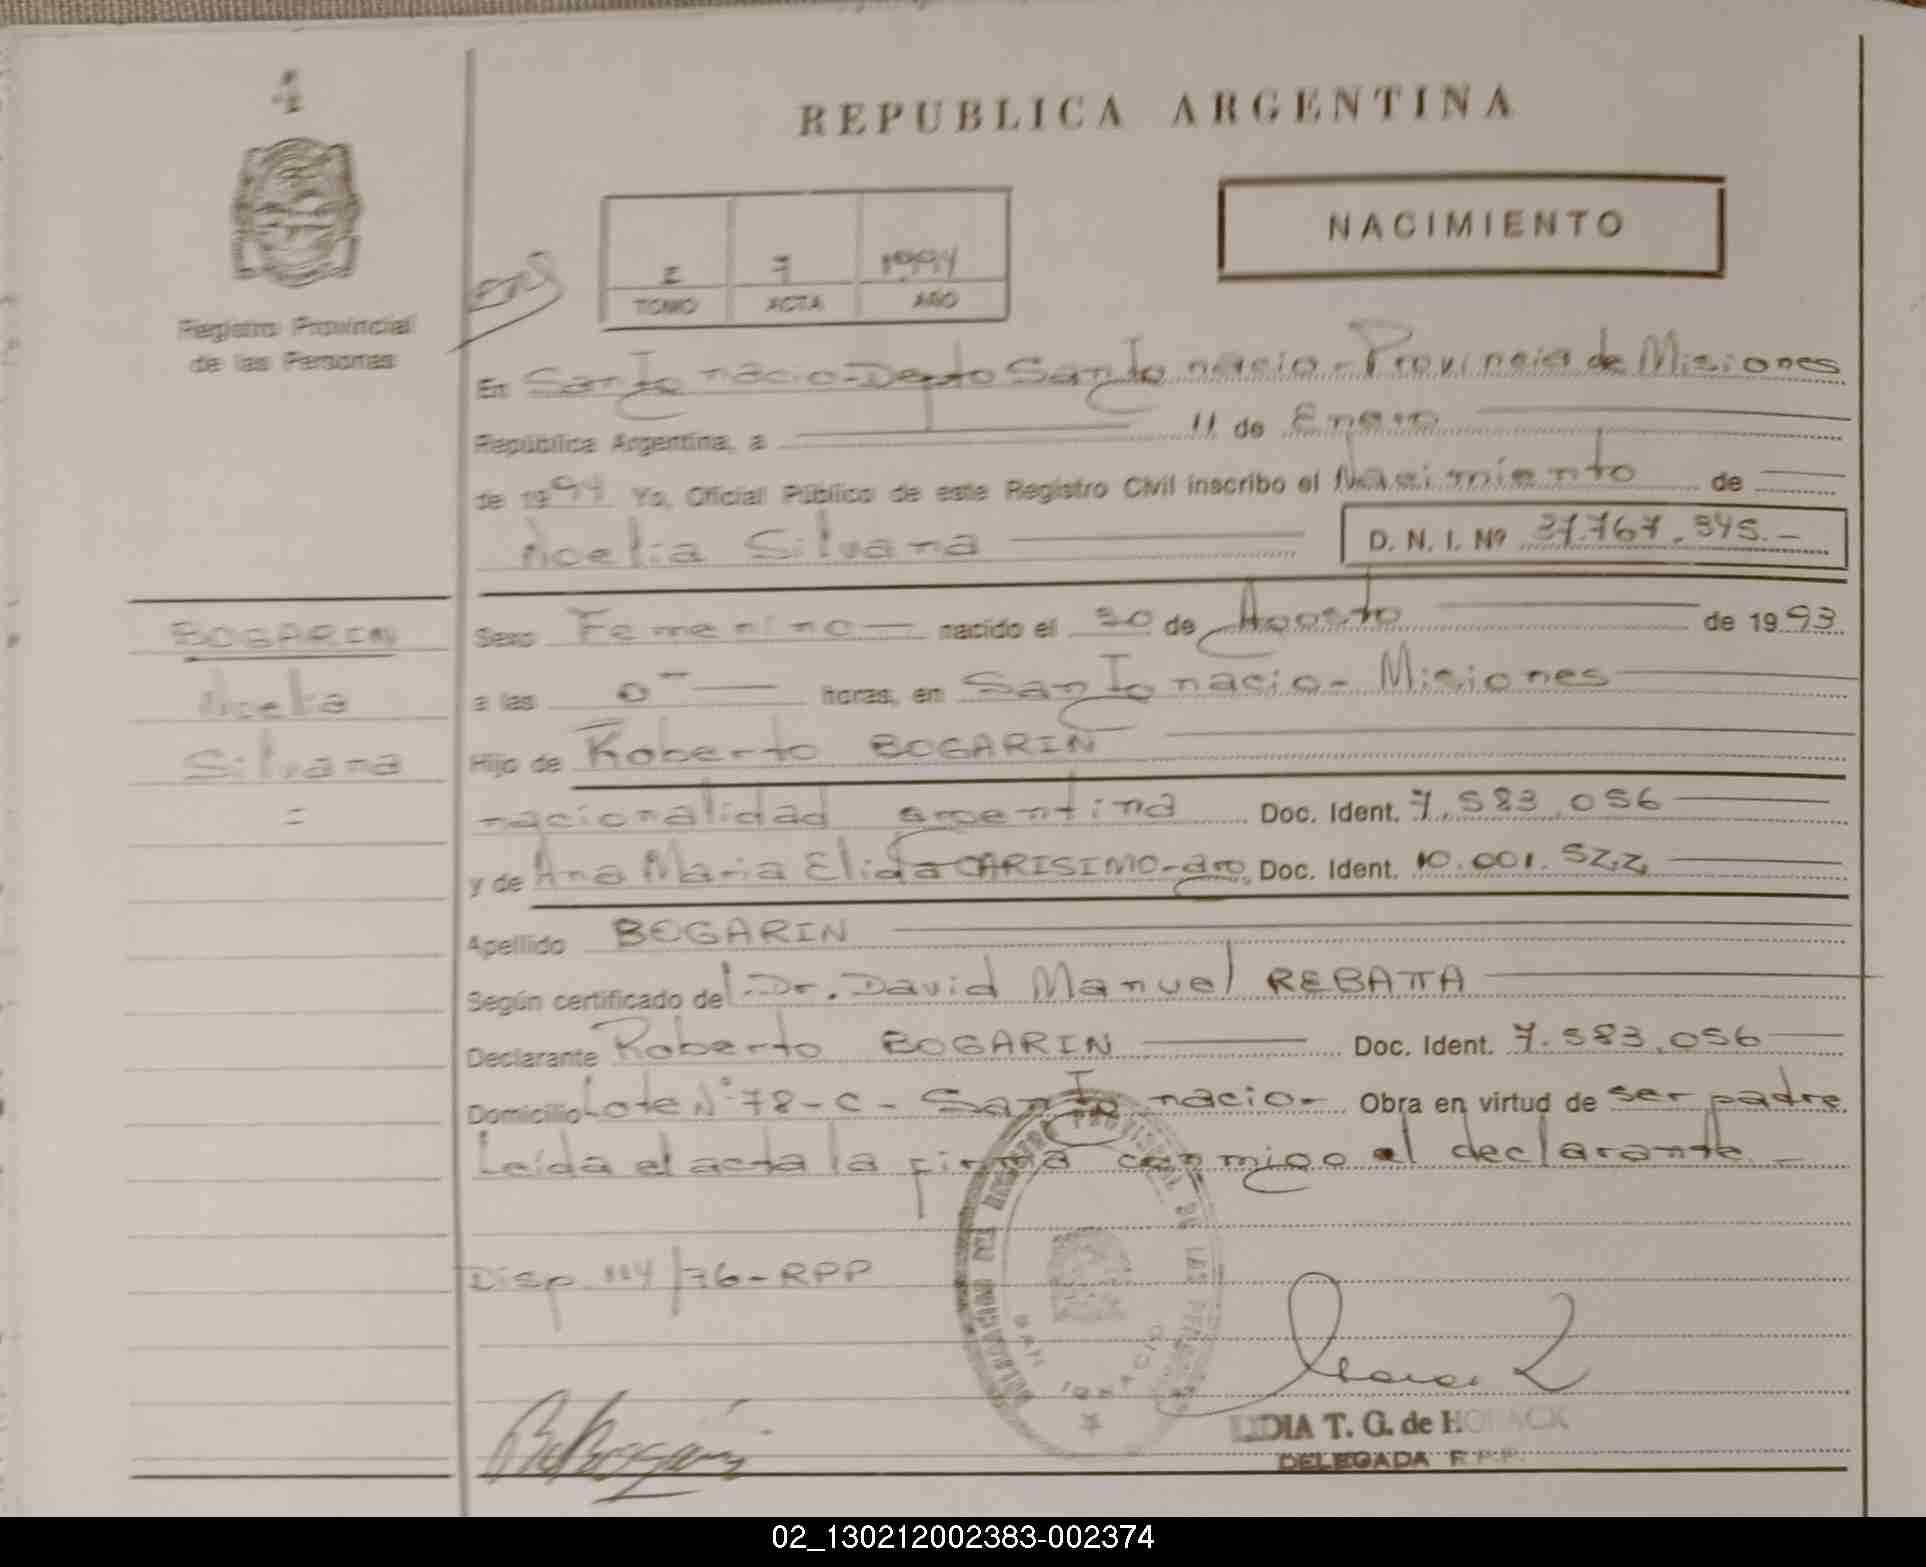 4
REPUBLICA ARGENTINA
NACIMIENTO
I 7 1994
TOMO ACTA AÑO
Registro Provincial
de las Personas
En San Ignacio-Depto San Ignacio-Provincia de Misiones
República Argentina, a 11 de Enero
de 1994 Yo, Oficial Público de este Registro Civil inscribo el Nacimiento de
Noelia Silvana D. N. I. Nº 37.767.345.-
BOGARIN
Noelia
Silvana
=
Sexo Femenino nacido el 30 de Agosto de 1993
a las 0 horas, en San Ignacio- Misiones
Hijo de Roberto BOGARIN
nacionalidad argentina Doc. Ident. 7.583.056
y de Ana Maria Elida CARISIMO-arg. Doc. Ident. 10.001.522
Apellido BOGARIN
Según certificado del Dr. David Manuel REBATTA
Declarante Roberto BOGARIN Doc. Ident. 7.583.056
Domicilio Lote Nº 78-C- San Ignacio- Obra en virtud de ser padre.
Leída el acta la firma conmigo el declarante -
Disp 114/76-RPP
LIDIA T. G. de HORACK
DELEGADA R.P.P.
02_130212002383-002374